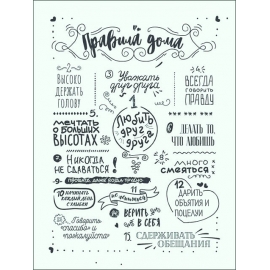 Правила дома
2
ВЫСОКО
ДЕРЖАТЬ
ГОЛОВУ
3 Уважать
друг друга
4.
ВСЕГДА
ГОВОРИТЬ
ПРАВДУ
1
Любить
друг
друга
5.
МЕЧТАТЬ
О БОЛЬШИХ
ВЫСОТАХ
6 ДЕЛАТЬ ТО,
ЧТО ЛЮБИШЬ
7 НИКОГДА
НЕ СДАВАТЬСЯ!
8 много
СМЕЯТЬСЯ
9
10 НАЧИНАТЬ
КАЖДЫЙ ДЕНЬ
С УЛЫБКИ
11
12
ДАРИТЬ
ОБЪЯТИЯ И
ПОЦЕЛУИ
Говорить
спасибо и
пожалуйста
ВЕРИТЬ
В СЕБЯ
15. СДЕРЖИВАТЬ
ОБЕЩАНИЯ